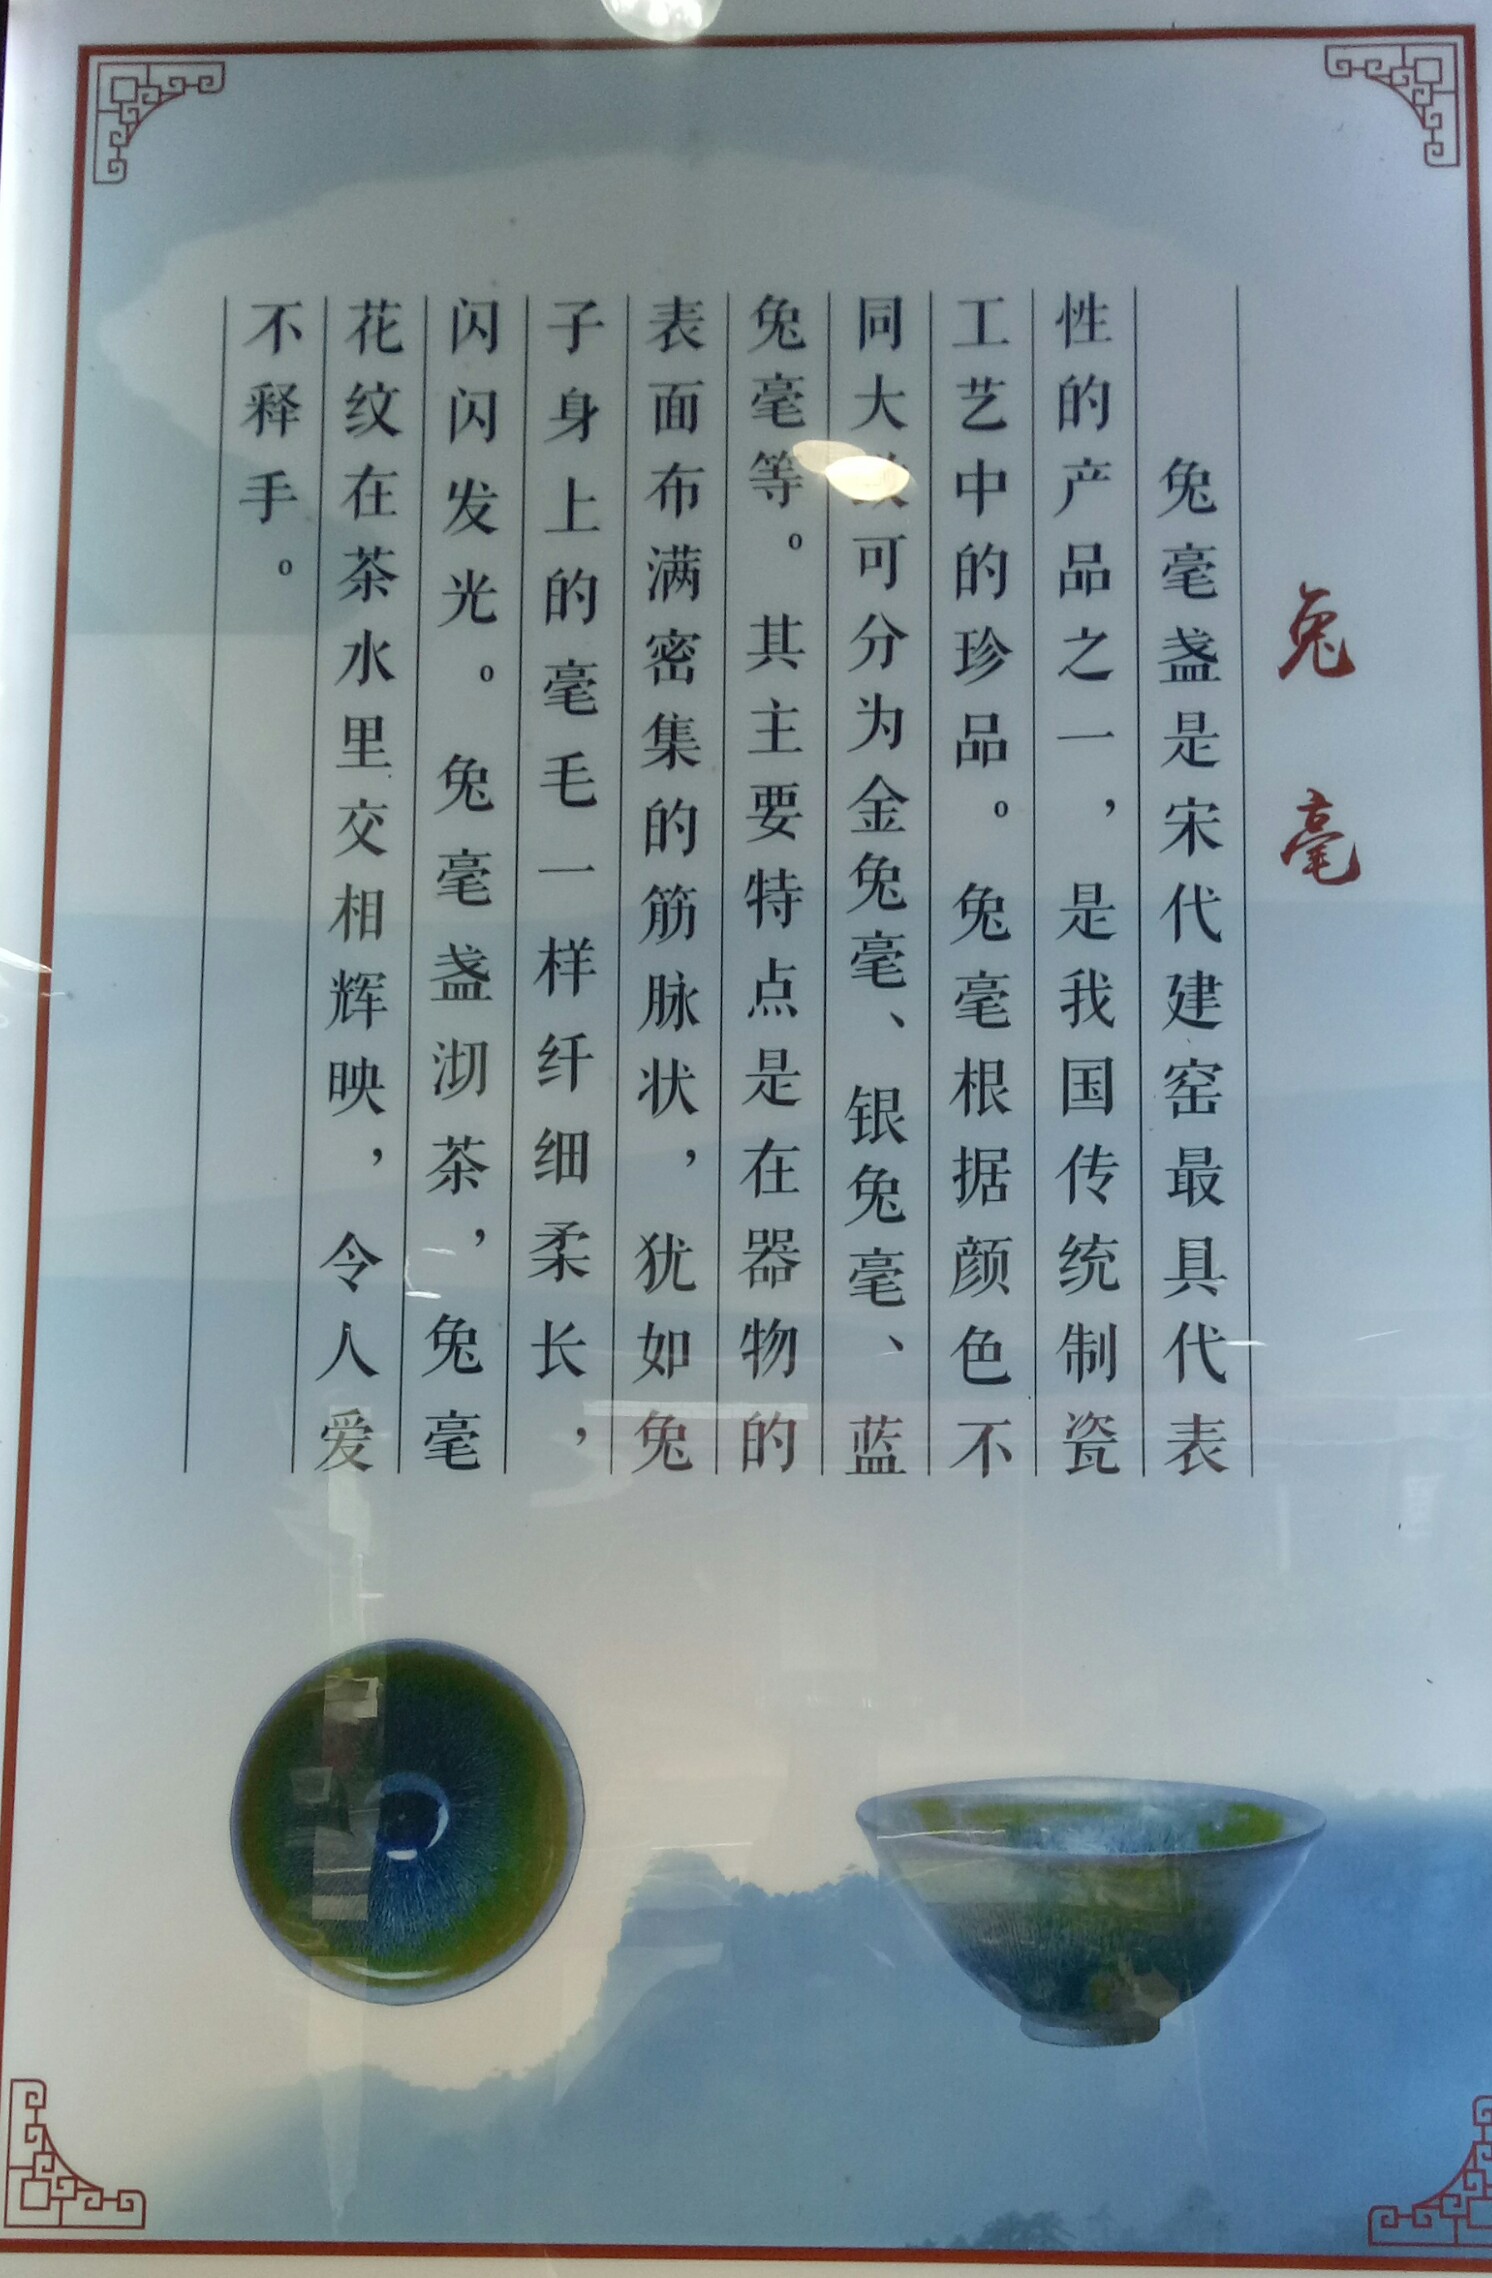 兔毫
兔毫盏是宋代建窑最具代表
性的产品之一，是我国传统制瓷
工艺中的珍品。兔毫根据颜色不
同大致可分为金兔毫、银兔毫、蓝
兔毫等。其主要特点是在器物的
表面布满密集的筋脉状，犹如兔
子身上的毫毛一样纤细柔长，
闪闪发光。兔毫盏沏茶，兔毫
花纹在茶水里交相辉映，令人爱
不释手。